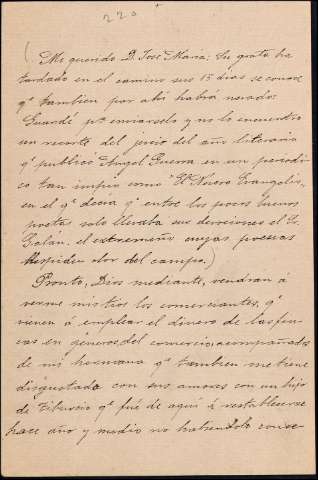 220
(Mi querido D. Jose Maria: Su grata ha
tardado en el camino sus 15 dias se conoce
qᵉ tambien por ahi habrá nevado.
Guardé pª enviarselo y no lo encuentro
un recorte del juicio del año literario
qᵉ publicó Angel Guerra en un periodi-
co tan impio como "El Nuevo Evangelio,
en el qᵉ decia qᵉ entre los pocos buenos
poetas solo llevaba sus devociones el Sr.
Galan, el extremeño cuyas poesias
despiden olor del campo.)
Pronto, Dios mediante, vendran á
verme mis tios los comerciantes, qᵉ
vienen á emplear el dinero de las fin-
cas en generos del comercio, acompañados
de mi hermana qᵉ tambien me tiene
disgustada con sus amores con un hijo
de Tiburcio qᵉ fué de aqui á restablecerse
hace año y medio no habiendolo conse-